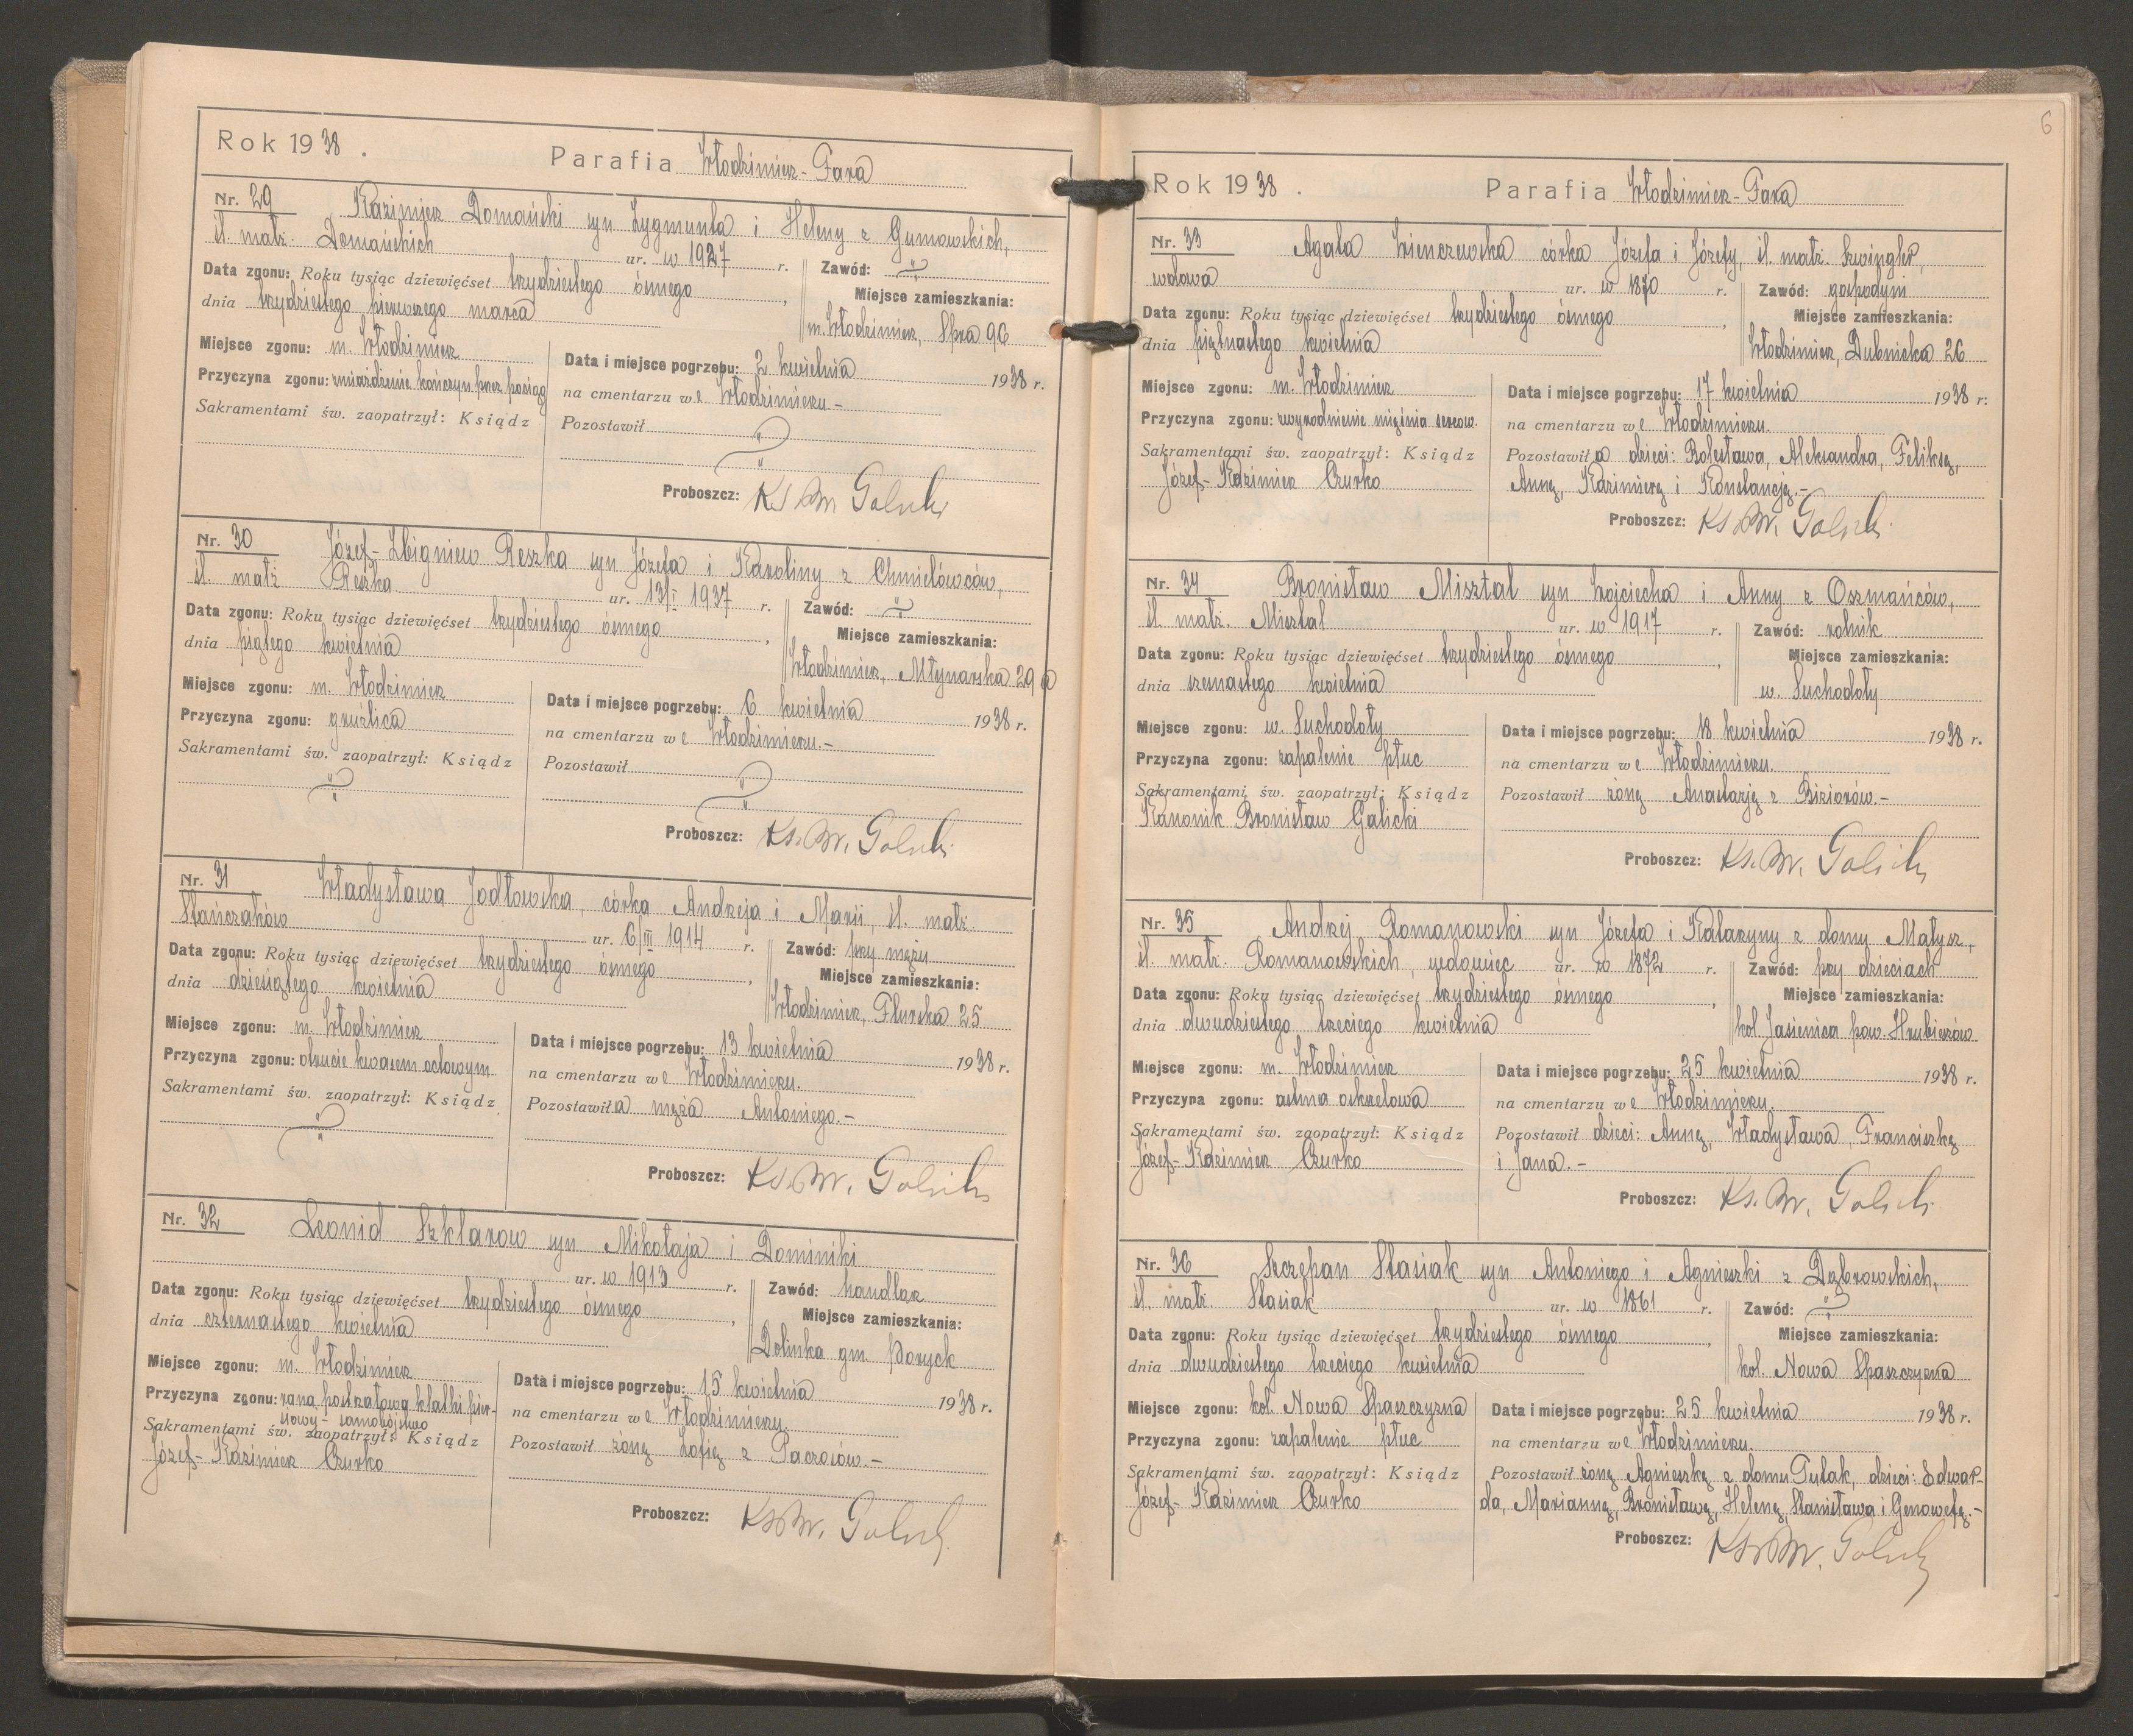 Rok 1938.
Parafia Włodzimierz-Fara
Nr. 29 Kazimierz Domański syn Zygmunta i Heleny z Gumowskich,
śl. małż. Domańskich ur. w 1927 r.
Zawód:
Data zgonu: Roku tysiąc dziewięćset trzydziestego ósmego,
dnia trzydziestego pierwszego marca
Miejsce zamieszkania:
m. Włodzimierz, Spra 96
Miejsce zgonu: m. Włodzimierz
Przyczyna zgonu: zmiażdżenie kończyn przez pociąg
Sakramentami św. zaopatrzył: Ksiądz
Data i miejsce pogrzebu: 2 kwietnia 1938 r.
na cmentarzu we Włodzimierzu.-
Pozostawił
Proboszcz: Ks. Br. Galicki
Nr. 30 Józef-Zbigniew Reszka syn Józefa i Karoliny z Chmielówców,
śl. małż Reszka ur. 13/I 1937 r.
Zawód:
Data zgonu: Roku tysiąc dziewięćset trzydziestego ósmego,
dnia piątego kwietnia
Miejsce zamieszkania:
Włodzimierz, Młynarska 29 a
Miejsce zgonu: m. Włodzimierz
Przyczyna zgonu: gruźlica
Sakramentami św. zaopatrzył: Ksiądz
Data i miejsce pogrzebu: 6 kwietnia 1938 r.
na cmentarzu we Włodzimierzu.-
Pozostawił
Proboszcz: Ks. Br. Galicki
Nr. 31 Władysława Jodłowska, córka Andrzeja i Marii, śl. małż.
Stańczaków ur. 6/III 1914 r.
Zawód: przy mężu
Data zgonu: Roku tysiąc dziewięćset trzydziestego ósmego,
dnia dziesiątego kwietnia
Miejsce zamieszkania:
Włodzimierz, 25
Miejsce zgonu: m. Włodzimierz
Przyczyna zgonu: otrucie kwasem octowym
Sakramentami św. zaopatrzył: Ksiądz
Data i miejsce pogrzebu: 13 kwietnia 1938 r.
na cmentarzu we Włodzimierzu.
Pozostawiła męża Antoniego.-
Proboszcz: Ks. Br. Galicki
Nr. 32 Leonid Szklarow syn Mikołaja i Dominiki
ur. w 1913 r.
Zawód: handlarz
Data zgonu: Roku tysiąc dziewięćset trzydziestego ósmego,
dnia czternastego kwietnia
Miejsce zamieszkania:
Dolinka gm. Poryck
Miejsce zgonu: m. Włodzimierz
Przyczyna zgonu: rana postrzałowa klatki pier-
siowy - samobójstwo
Sakramentami św. zaopatrzył: Ksiądz
Józef-Kazimierz Czurko
Data i miejsce pogrzebu: 15 kwietnia 1938 r.
na cmentarzu we Włodzimierzu.
Pozostawił żonę Zofię z Paczosów.-
Proboszcz: Ks. Br. Galicki
6
Rok 1938.
Parafia Włodzimierz-Fara
Nr. 33 Agata Wienczewska córka Józefa i Józefy, śl. małż. Szwingler,
wdowa ur. w 1870 r.
Zawód: gospodyni
Data zgonu: Roku tysiąc dziewięćset trzydziestego ósmego,
dnia piętnastego kwietnia
Miejsce zamieszkania:
Włodzimierz, Dubnicka 26
Miejsce zgonu: m. Włodzimierz
Przyczyna zgonu: zwyrodnienie mięśnia sercow.
Sakramentami św. zaopatrzył: Ksiądz
Józef-Kazimierz Czurko
Data i miejsce pogrzebu: 17 kwietnia 1938 r.
na cmentarzu we Włodzimierzu.
Pozostawiła dzieci: Bolesława, Aleksandra, Feliksę,
Annę, Kazimierę i Konstancję.-
Proboszcz: Ks. Br. Galicki
Nr. 34 Bronisław Misztal syn Wojciecha i Anny z Oszmańców,
śl. małż. Misztal ur. w 1917 r.
Zawód: rolnik
Data zgonu: Roku tysiąc dziewięćset trzydziestego ósmego,
dnia szesnastego kwietnia
Miejsce zamieszkania:
w. Suchodoły
Miejsce zgonu: w. Suchodoły
Przyczyna zgonu: zapalenie płuc
Sakramentami św. zaopatrzył: Ksiądz
Kanonik Bronisław Galicki
Data i miejsce pogrzebu: 18 kwietnia 1938 r.
na cmentarzu we Włodzimierzu.
Pozostawił żonę Anastazję z Biziorów.-
Proboszcz: Ks. Br. Galicki
Nr. 35 Andrzej Romanowski syn Józefa i Katarzyny z domu Małysz,
śl. małż. Romanowskich, wdowiec ur. w 1872 r.
Zawód: przy dzieciach
Data zgonu: Roku tysiąc dziewięćset trzydziestego ósmego,
dnia dwudziestego trzeciego kwietnia
Miejsce zamieszkania:
kol. Jasienica pow. Hrubieszów
Miejsce zgonu: m. Włodzimierz
Przyczyna zgonu: astma oskrzelowa
Sakramentami św. zaopatrzył: Ksiądz
Józef-Kazimierz Czurko
Data i miejsce pogrzebu: 25 kwietnia 1938 r.
na cmentarzu we Włodzimierzu.
Pozostawił dzieci: Annę, Władysława, Franciszkę
i Jana.-
Proboszcz: Ks. Br. Galicki
Nr. 36 Szczepan Stasiak syn Antoniego i Agnieszki z Dąbrowskich,
śl. małż. Stasiak ur. w 1861 r.
Zawód:
Data zgonu: Roku tysiąc dziewięćset trzydziestego ósmego,
dnia dwudziestego trzeciego kwietnia
Miejsce zamieszkania:
kol. Nowa Spaszczyzna
Miejsce zgonu: kol. Nowa Spaszczyzna
Przyczyna zgonu: zapalenie płuc
Sakramentami św. zaopatrzył: Ksiądz
Józef-Kazimierz Czurko
Data i miejsce pogrzebu: 25 kwietnia 1938 r.
na cmentarzu we Włodzimierzu.
Pozostawił żonę Agnieszkę z domu Gulak, dzieci: Edwar-
da, Mariannę, Bronisławę, Helenę, Stanisława i Genowefę.-
Proboszcz: Ks. Br. Galicki